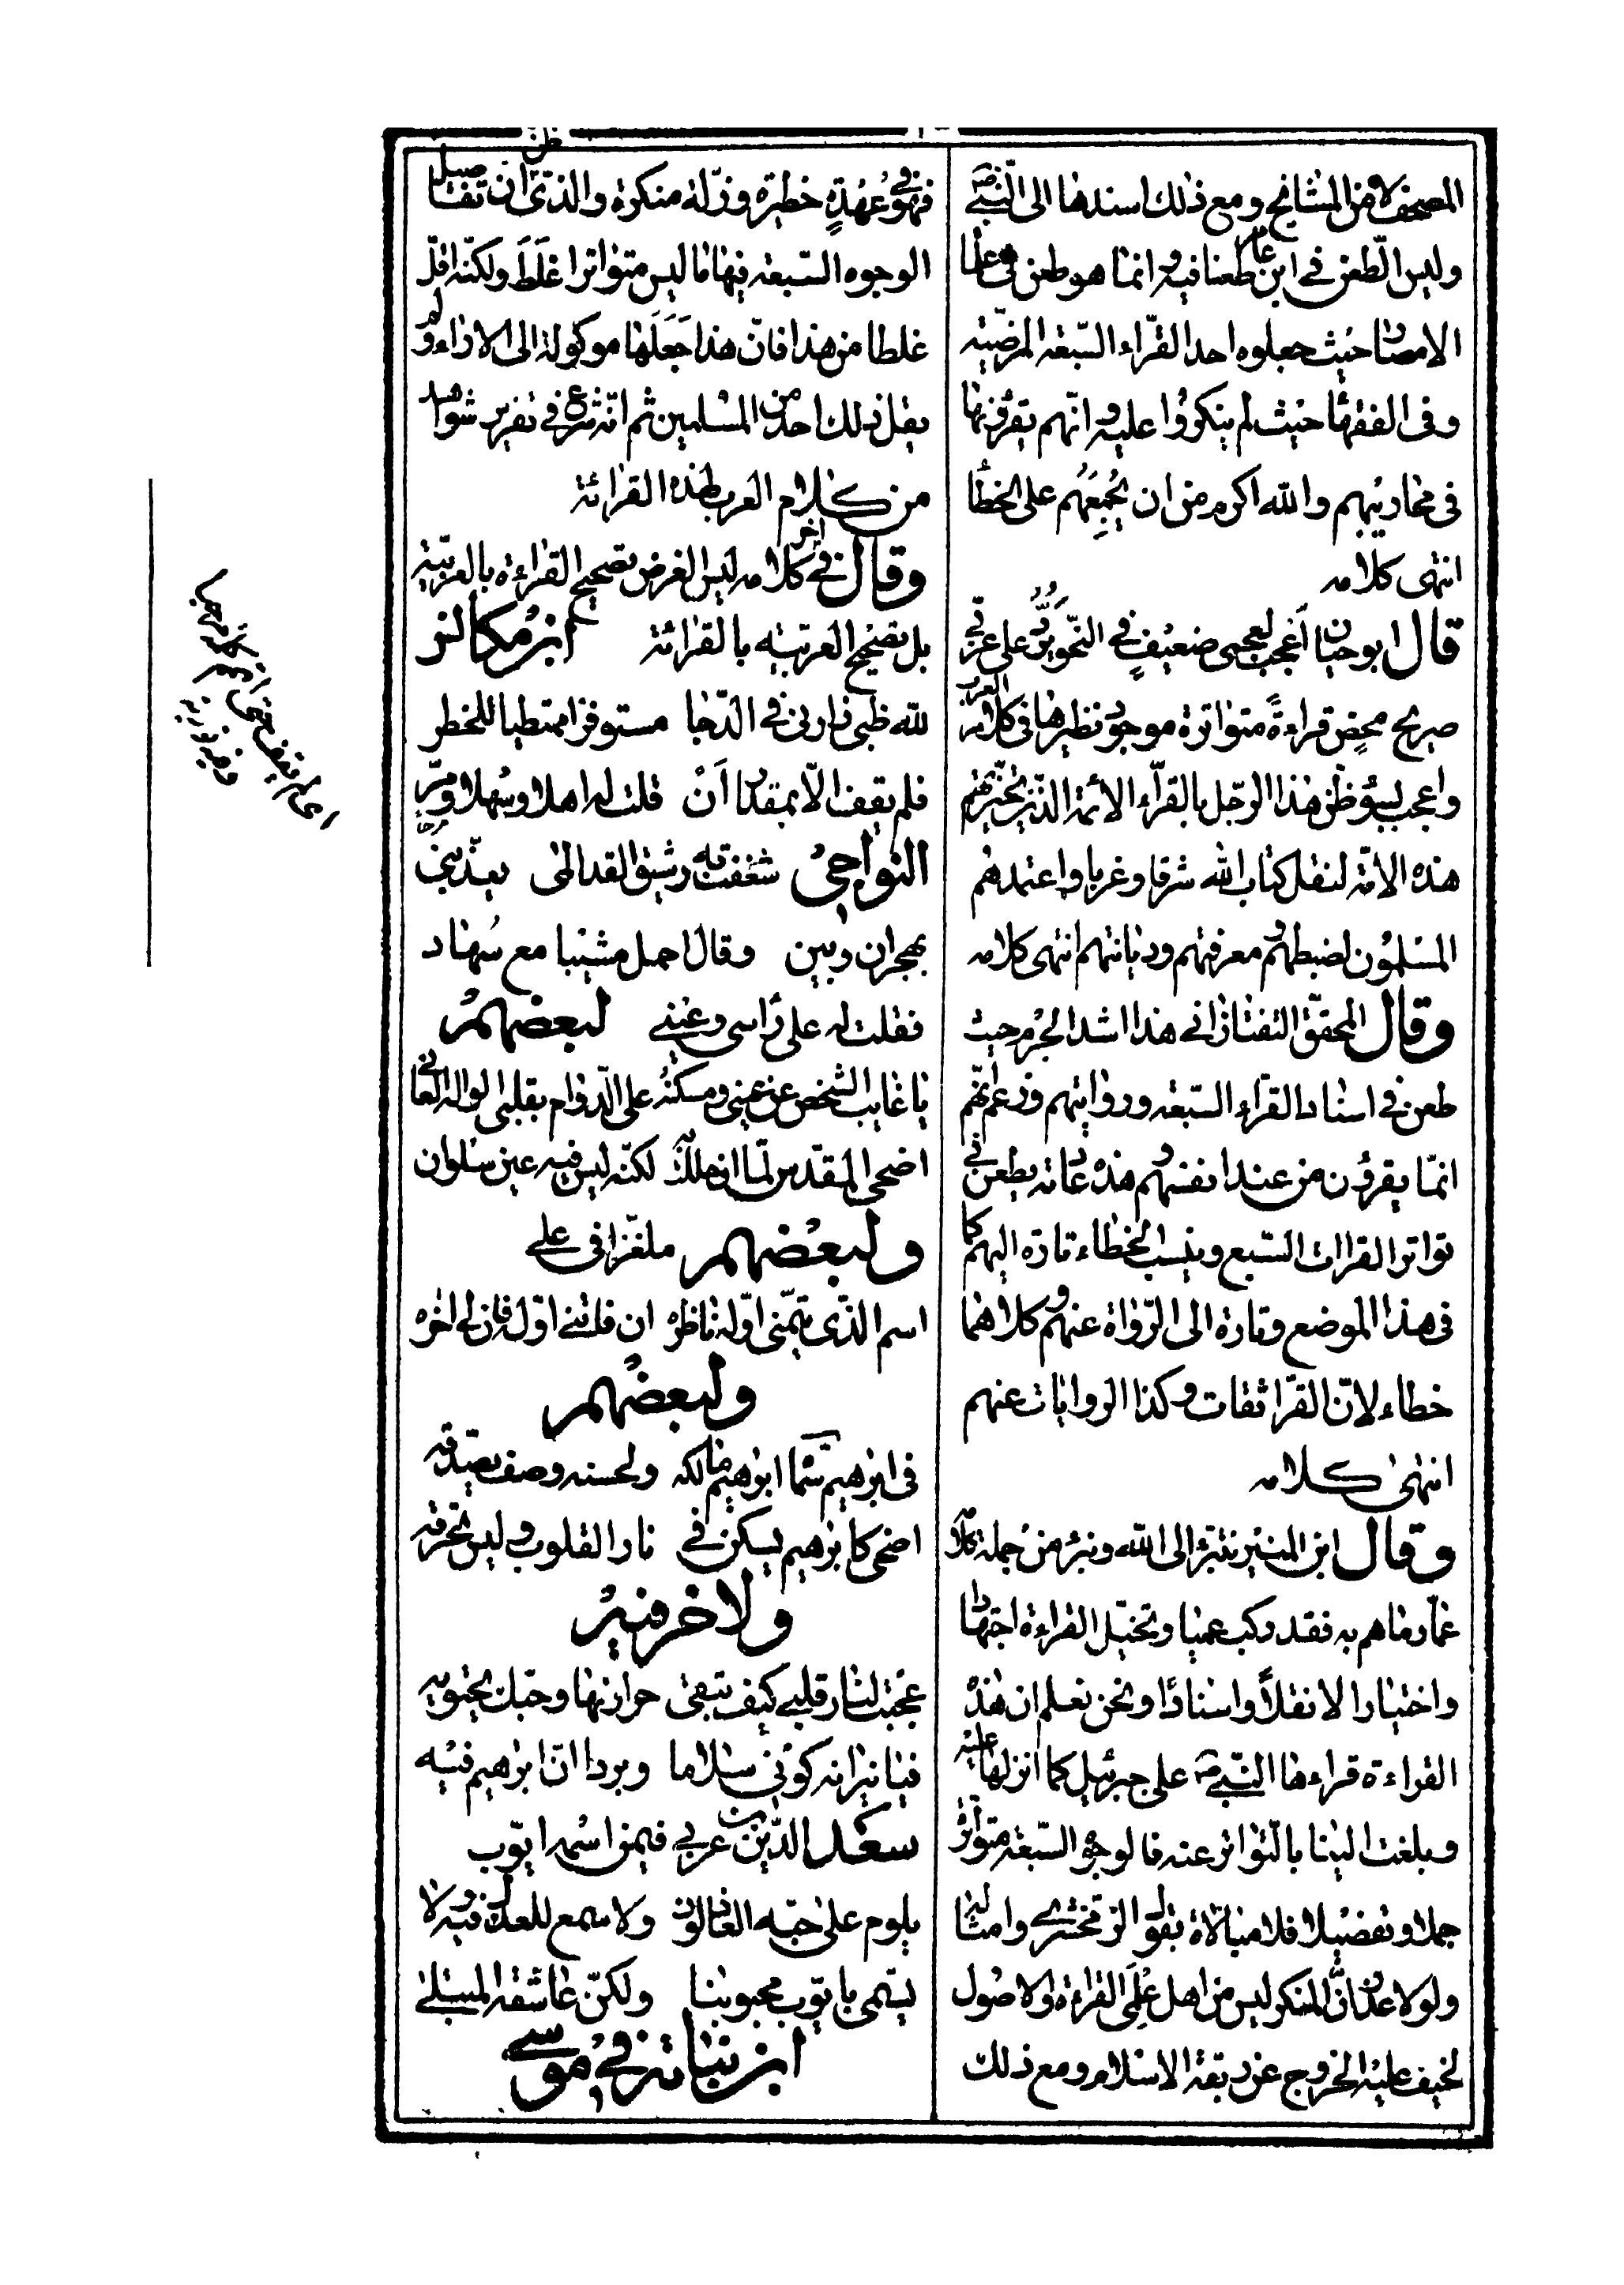 المصحف لا من المشايخ ومع ذلك اسندها الى النبي ص
وليس الطعن في ابن عامر طعنا فيه وانما هو طعن في علماء
الامصار حيث جعلوه احد القراء السبعة المرضية
وفي الفقهاء حيث لم ينكروا عليه وانهم يقرؤنها
في محاريبهم والله اكرم من ان يجمعهم على الخطأ
انتهى كلامه
قال ابو حيان اعجب لعجمى ضعيف في النحو يرد على عربي
صريح محض قراءة متواترة موجود نظيرها في كلام العرب
واعجب لسوء ظن هذا الرجل بالقراء الائمة الذين تخيرتهم
هذه الامة لنقل كتاب الله شرقا وغربا واعتمدهم
المسلمون لضبطهم ومعرفتهم وديانتهم انتهى كلامه
وقال المحقق التفتازاني هذا اشد الجرم حيث
طعن في اسناد القراء السبعة ورواياتهم وزعم انهم
انما يقرؤن من عند انفسهم وهذه عادته يطعن في
تواتر القراات السبع وينسب الخطاء تارة اليهم كما
في هذا الموضع وتارة الى الرواة عنهم وكلاهما
خطاء لان القراء ثقات وكذا الروايات عنهم
انتهى كلامه
وقال ابن المنير نتبرء الى الله ونبرء من جملة كلامه
عما رماهم به فقد ركب عميا وتخيل القراءة اجتهادا
واختيارا لا نقلا واسنادا ونحن نعلم ان هذه
القراءة قراءها النبي ص على جبرئيل كما انزلها عليه
وبلغت الينا بالتواتر عنه فالوجوه السبعة متواترة
جملا وتفصيلا فلا مبالاة بقول الزمخشري وامثاله
ولولا عذر ان المنكر ليس من اهل علمي القراءة والاصول
لخيف عليه الخروج عن ربقة الاسلام ومع ذلك
فهو في عهدة خطيرة وزلة منكرة والذي ظن ان تفاصيل
الوجوه السبعة فيها ما ليس متواترا غلط ولكنه اقل
غلطا من هذا فان هذا جعلها موكولة الى الاراء ولم
يقل ذلك احد من المسلمين ثم انه شرع في تقرير شواهد
من كلام العرب لهذه القرائة
وقال في اخر كلامه ليس الغرض تصحيح القراءة بالعربية
بل تصحيح العربية بالقرائة ابن مكانس
لله ظبي زارني في الدجا مستوفزا ممتطيا للخطر
فلم يقف الا بمقدار ان قلت له اهلا وسهلا ومر
النواجي شغفت به رشيق القد المى يعذبني
بهجران وبين وقال احمل مشيبا مع سهاد
فقلت له على راسي وعيني لبعضهم
يا غايب الشخص عن عيني ومسكنه على الدوام بقلبي الواله العاني
اضحى المقدس لما ان حللت لكنه ليس فيه عين سلوان
ولبعضهم ملغزا في علي
اسم الذي تيمني اوله ناظره ان فاتني اوله فان لي اخره
ولبعضهم
في ابرهيم سما ابرهيم مالكه ولحسنه وصف يصدقه
اضحى كابرهيم يسكن في نار القلوب وليس تحرقه
ولاخر فيه
عجبت لنار قلبي كيف تبقى حرارتها وحبك يحتويه
فيا نيرانه كوني سلاما وبردا ان ابرهيم فيه
سعد الدين بن عربي فيمن اسمه ايوب
يلوم على حبه العاذلون ولا سمع للعذل فيه ولا
يسمى بايوب محبوبنا ولكن عاشقه المبتلى
ابن نباتة في موسى